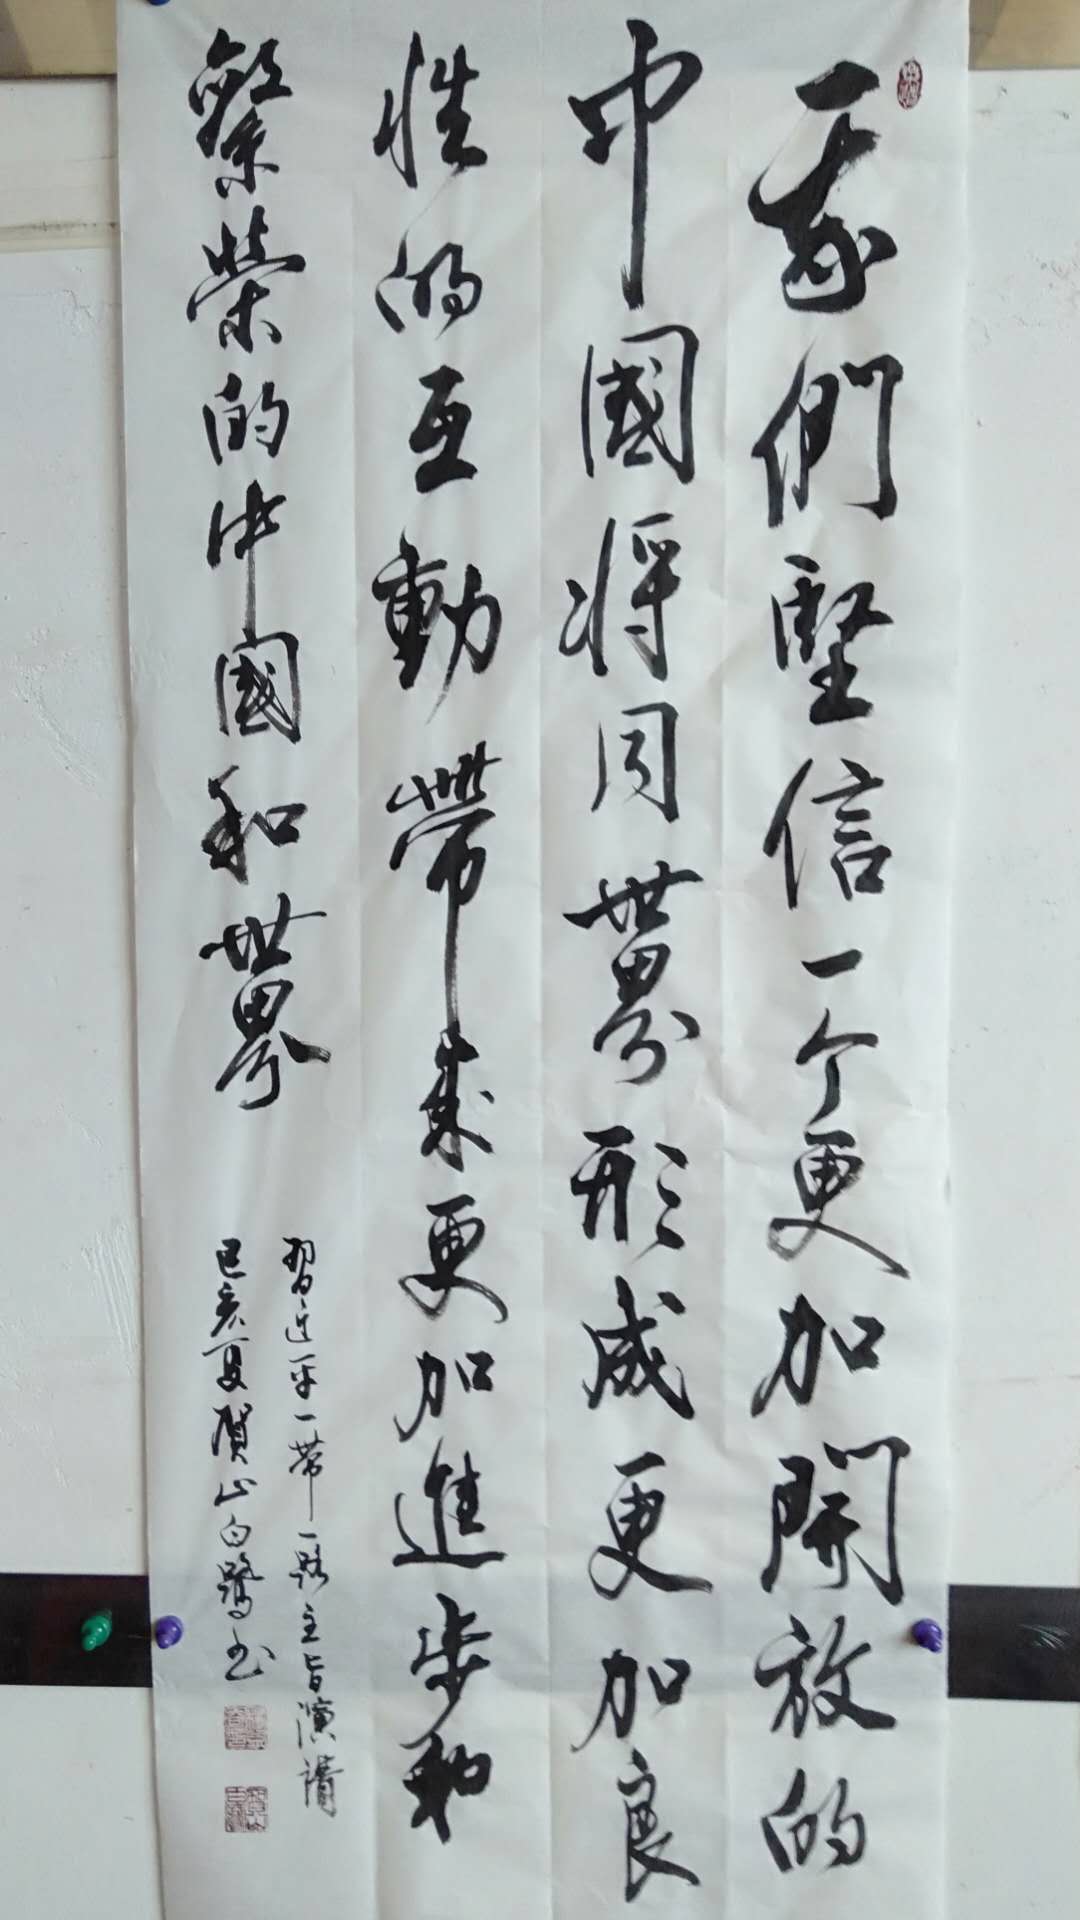 我們堅信一个更加開放的
中國将同世界形成更加良
性的互動帶來更加進步和
繁榮的中國和世界
習近平一帶一路主旨演講
己亥夏賀山白鷺书